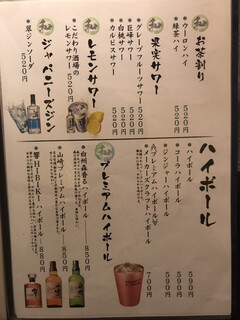 お茶割り
ウーロンハイ 520円
緑茶ハイ 520円
果実サワー
グレープフルーツサワー 520円
巨峰サワー 520円
白桃サワー 520円
カルピスサワー 520円
レモンサワー
こだわり酒場の
レモンサワー 520円
ジャパニーズジン
翠ジンソーダ 520円
ハイボール
ハイボール 590円
コーラハイボール 590円
ジンジャーハイボール 590円
メーカーズクラフトハイボール 700円
プレミアムハイボール
白州森香るハイボール 850円
山崎プレミアムハイボール 850円
響HIBIKIハイボール 880円